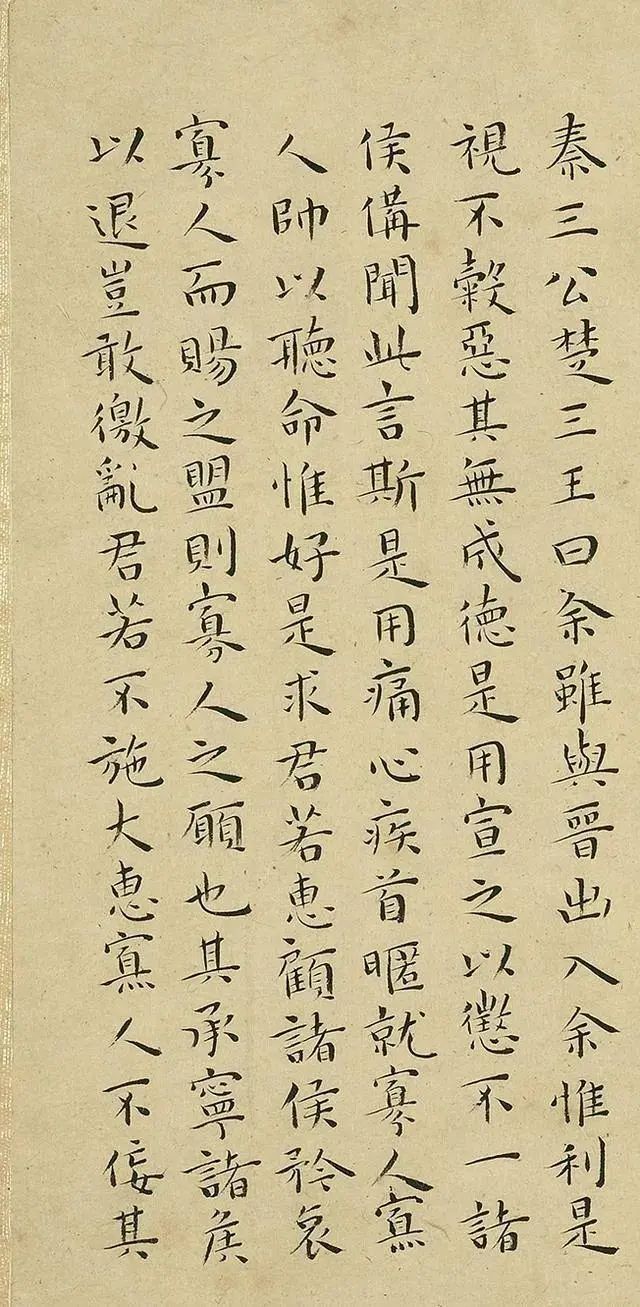 秦三公楚三王曰余雖與晉出入余惟利是
視不穀惡其無成德是用宣之以懲不一諸
侯俻聞此言斯是用痛心疾首暱就寡人寡
人帥以聽命惟好是求君若惠顧諸侯矜哀
寡人而賜之盟則寡人之願也其承寧諸侯
以退豈敢徼亂君若不施大惠寡人不佞其